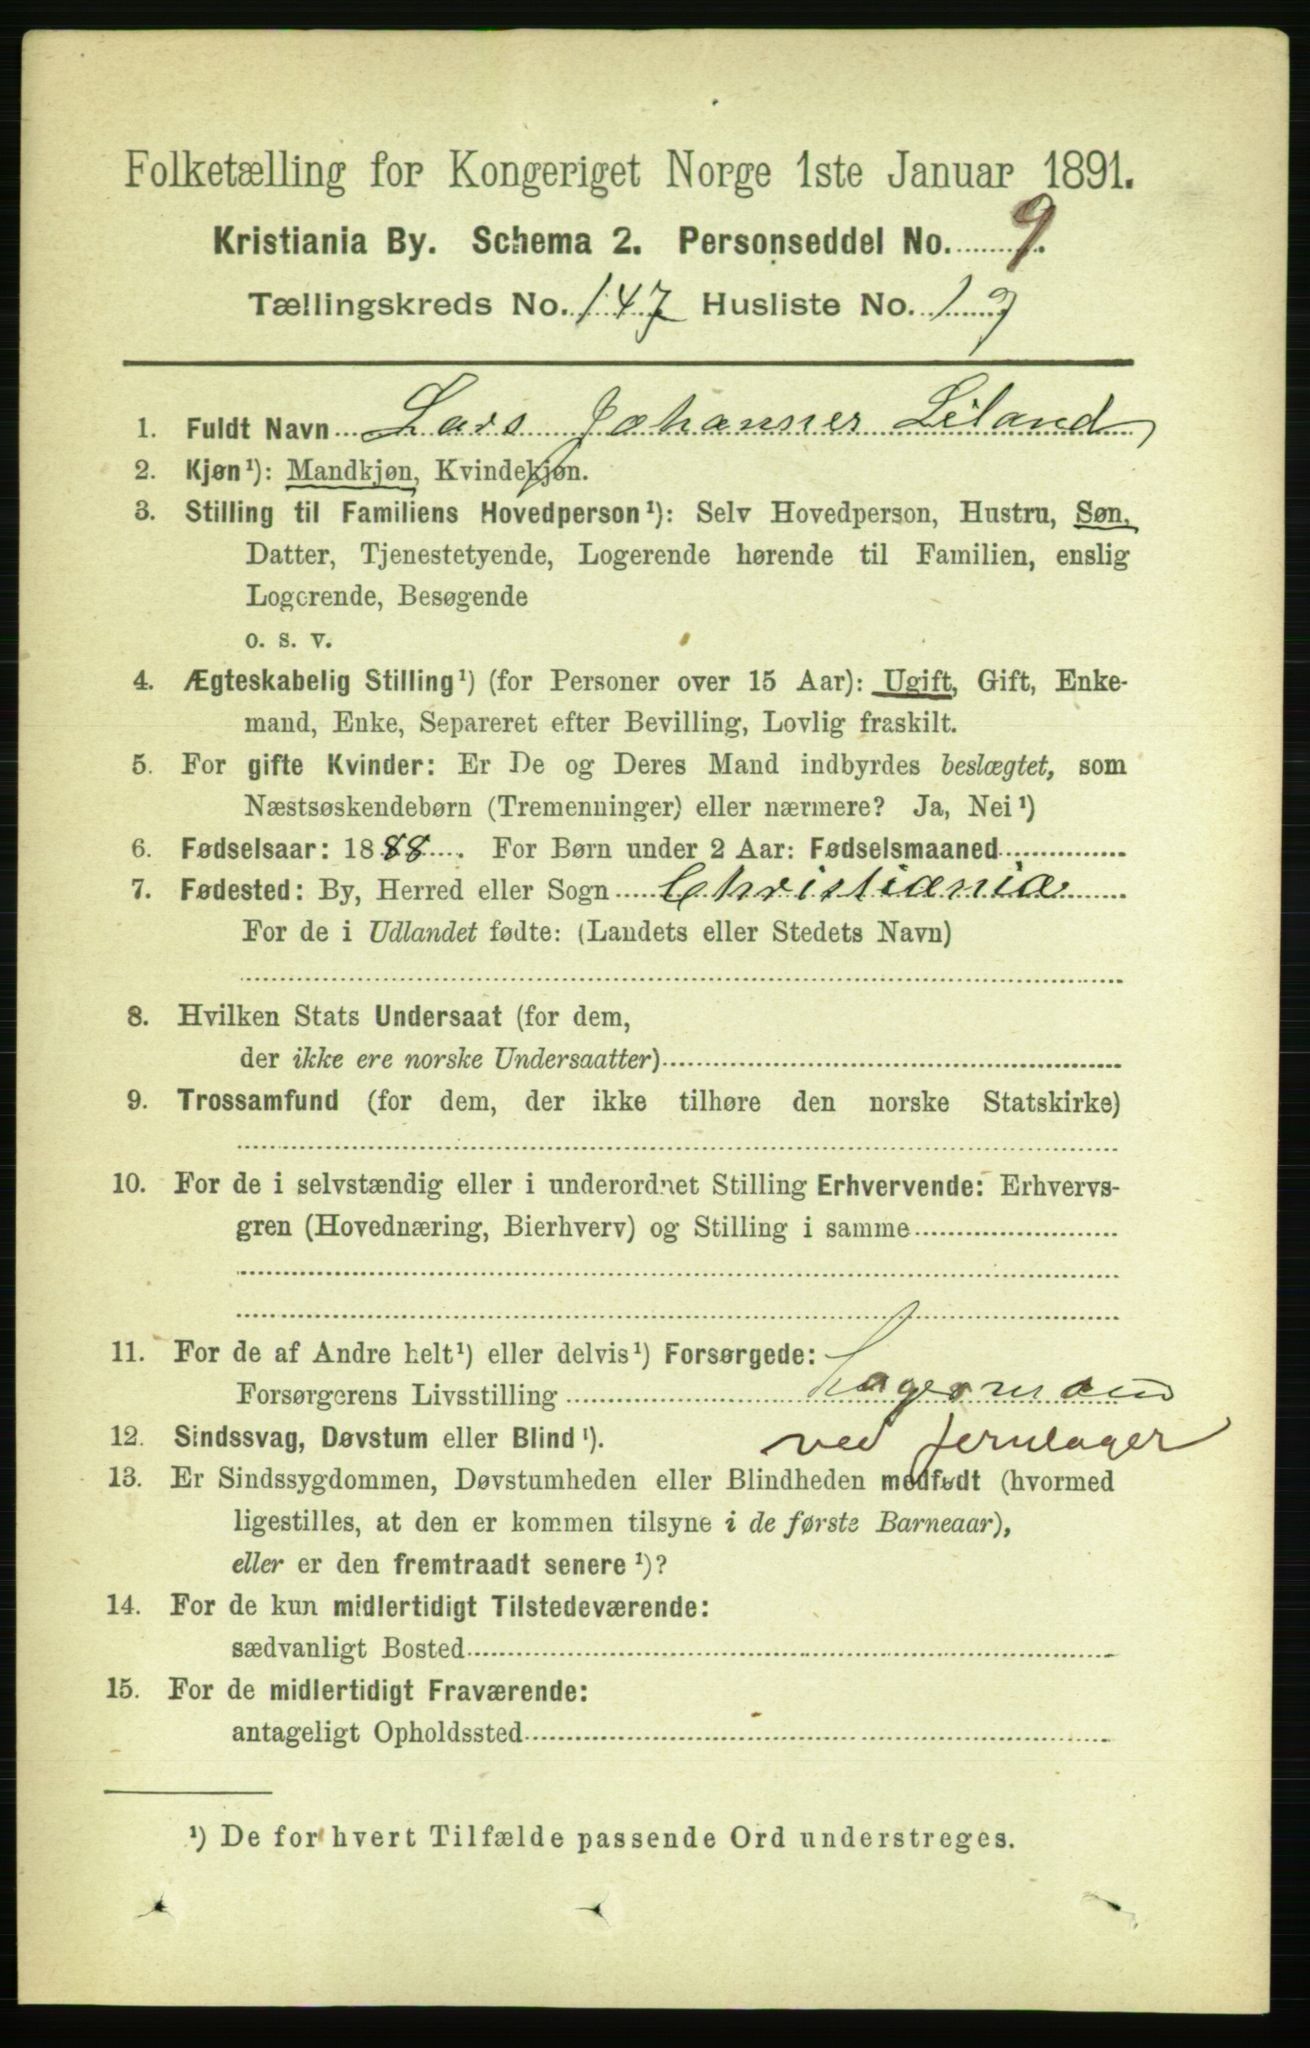 Folketælling for Kongeriget Norge 1ste Januar 1891.
Kristiania By. Schema 2. Personseddel No. 9.
Tællingskreds No. 147 Husliste No. 19
1. Fuldt Navn Lars Johannes Leland
2. Kjøn¹): Mandkjøn, Kvindekjøn.
3. Stilling til Familiens Hovedperson¹): Selv Hovedperson, Hustru, Søn,
Datter, Tjenestetyende, Logerende hørende til Familien, enslig
Logerende, Besøgende
o. s. v.
4. Ægteskabelig Stilling¹) (for Personer over 15 Aar): Ugift, Gift, Enke-
mand, Enke, Separeret efter Bevilling, Lovlig fraskilt.
5. For gifte Kvinder: Er De og Deres Mand indbyrdes beslægtet, som
Næstsøskendebørn (Tremenninger) eller nærmere? Ja, Nei¹)
6. Fødselsaar: 1888. For Børn under 2 Aar: Fødselsmaaned
7. Fødested: By, Herred eller Sogn Christiania
For de i Udlandet fødte: (Landets eller Stedets Navn)
8. Hvilken Stats Undersaat (for dem,
der ikke ere norske Undersaatter)
9. Trossamfund (for dem, der ikke tilhøre den norske Statskirke)
10. For de i selvstændig eller i underordnet Stilling Erhvervende: Erhvervs-
gren (Hovednæring, Bierhverv) og Stilling i samme
11. For de af Andre helt¹) eller delvis¹) Forsørgede:
Forsørgerens Livsstilling Lagermand
12. Sindssvag, Døvstum eller Blind¹). ved Jernlager
13. Er Sindssygdommen, Døvstumheden eller Blindheden medfødt (hvormed
ligestilles, at den er kommen tilsyne i de første Barneaar),
eller er den fremtraadt senere¹)?
14. For de kun midlertidigt Tilstedeværende:
sædvanligt Bosted
15. For de midlertidigt Fraværende:
antageligt Opholdssted
¹) De for hvert Tilfælde passende Ord understreges.